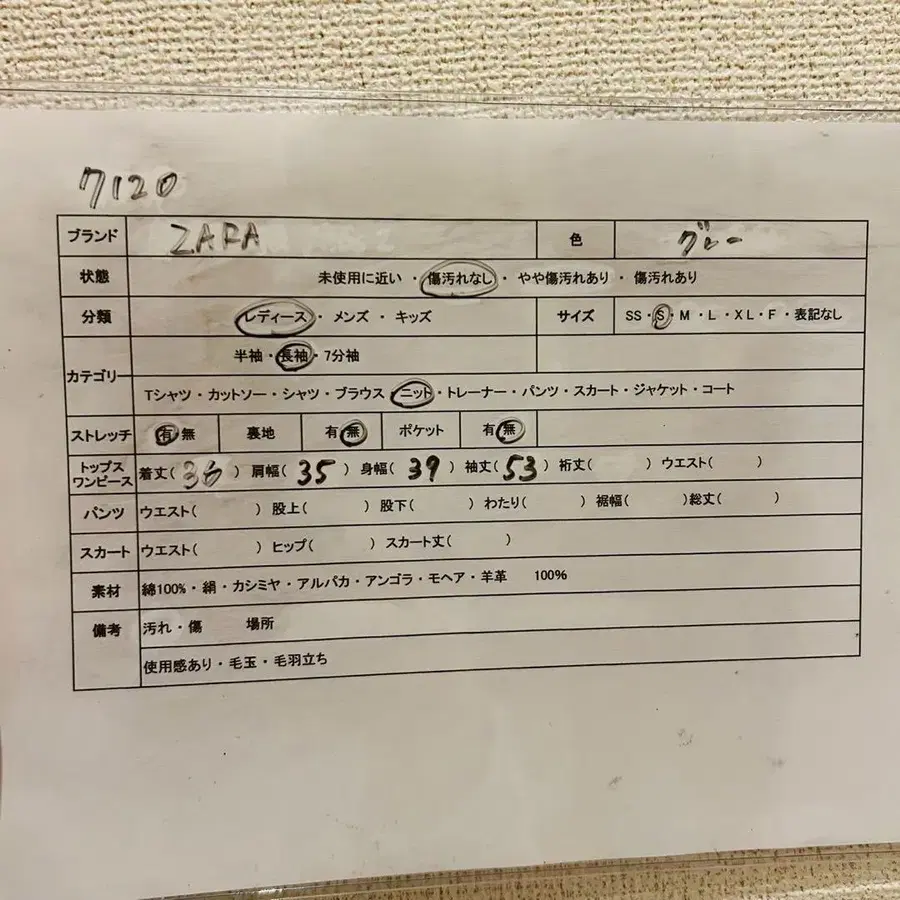 7120
ブランド ZARA 色 グレー
状態 未使用に近い・傷汚れなし・やや傷汚れあり・傷汚れあり
分類 レディース・メンズ・キッズ サイズ SS・S・M・L・XL・F・表記なし
カテゴリー 半袖・長袖・7分袖
Tシャツ・カットソー・シャツ・ブラウス・ニット・トレーナー・パンツ・スカート・ジャケット・コート
ストレッチ 有・無 裏地 有・無 ポケット 有・無
トップス ワンピース 着丈( ) 肩幅( 35 ) 身幅( 39 ) 袖丈( 53 ) 裄丈( ) ウエスト( )
パンツ ウエスト( ) 股上( ) 股下( ) わたり( ) 裾幅( ) 総丈( )
スカート ウエスト( ) ヒップ( ) スカート丈( )
素材 綿100%・絹・カシミヤ・アルパカ・アンゴラ・モヘア・羊革 100%
備考 汚れ・傷 場所
使用感あり・毛玉・毛羽立ち